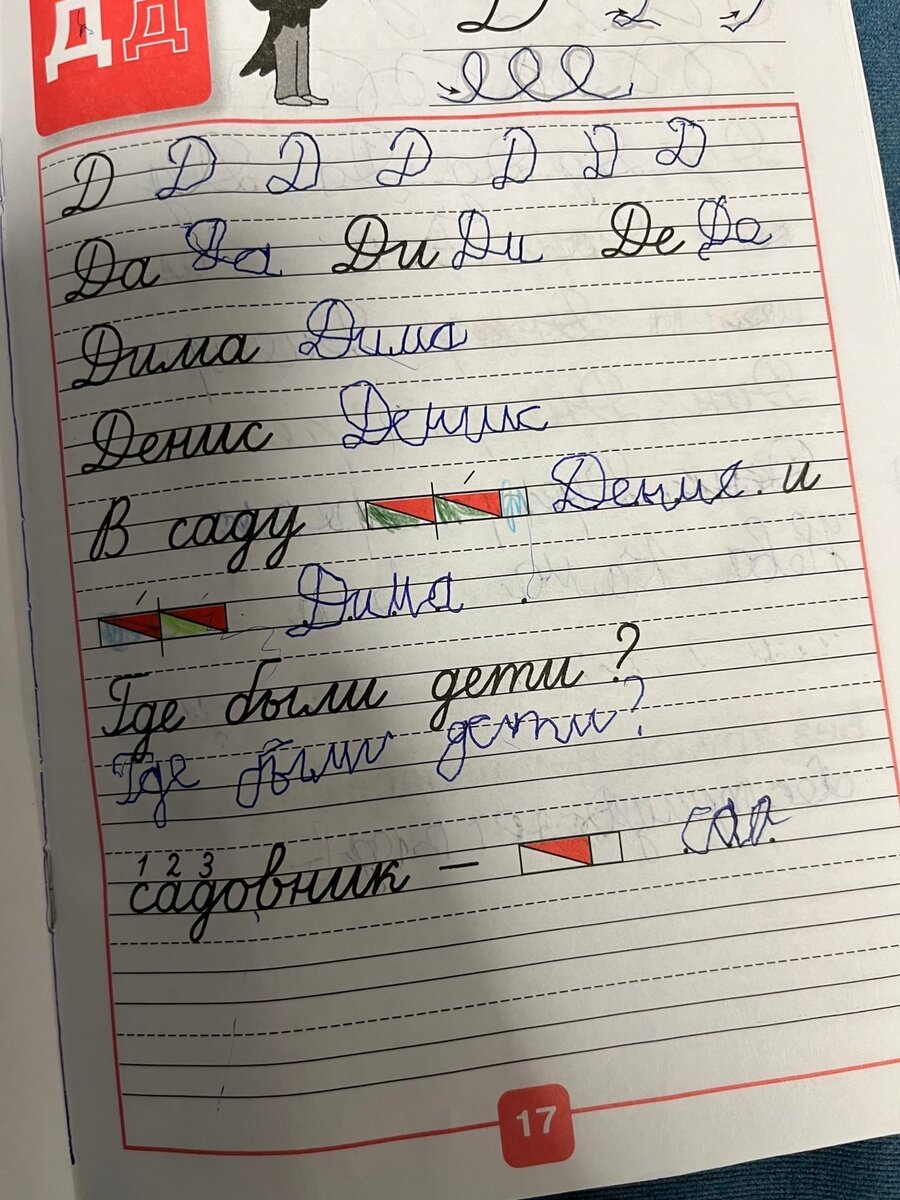 Д Д
Д
Д Д Д Д Д Д Д
Да Да Ди Ди Де Де
Дима Дима
Денис Деник
В саду Денис и
Дима
Где были дети?
Где были дети?
1 2 3
садовник – сад
17